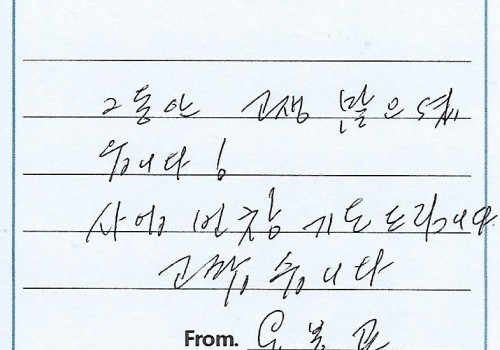 그동안 고생 많으셨
습니다!
사업 번창 기도드립니다
고맙습니다
From.